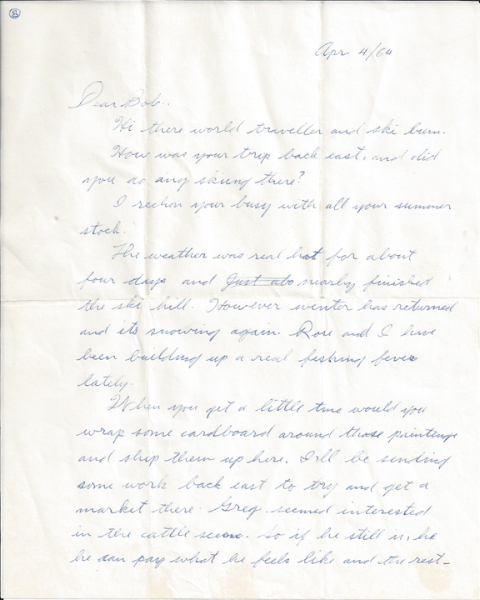 8
Apr 4/64
Dear Bob.
Hi there world traveller and ski bum.
How was your trip back east, and did
you do any skiing there?
I reckon your busy with all your summer
stock.
The weather was real hot for about
four days and Just abo nearly finished
the ski hill. However winter has returned
and its snowing again. Rose and I have
been building up a real fishing fever
lately.
When you get a little time would you
wrap some cardboard around those paintings
and ship them up here. I'll be sending
some work back east to try and get a
market there. Greg seemed interested
in the cattle scene. So if he still is, he
he can pay what he feels like and the rest-